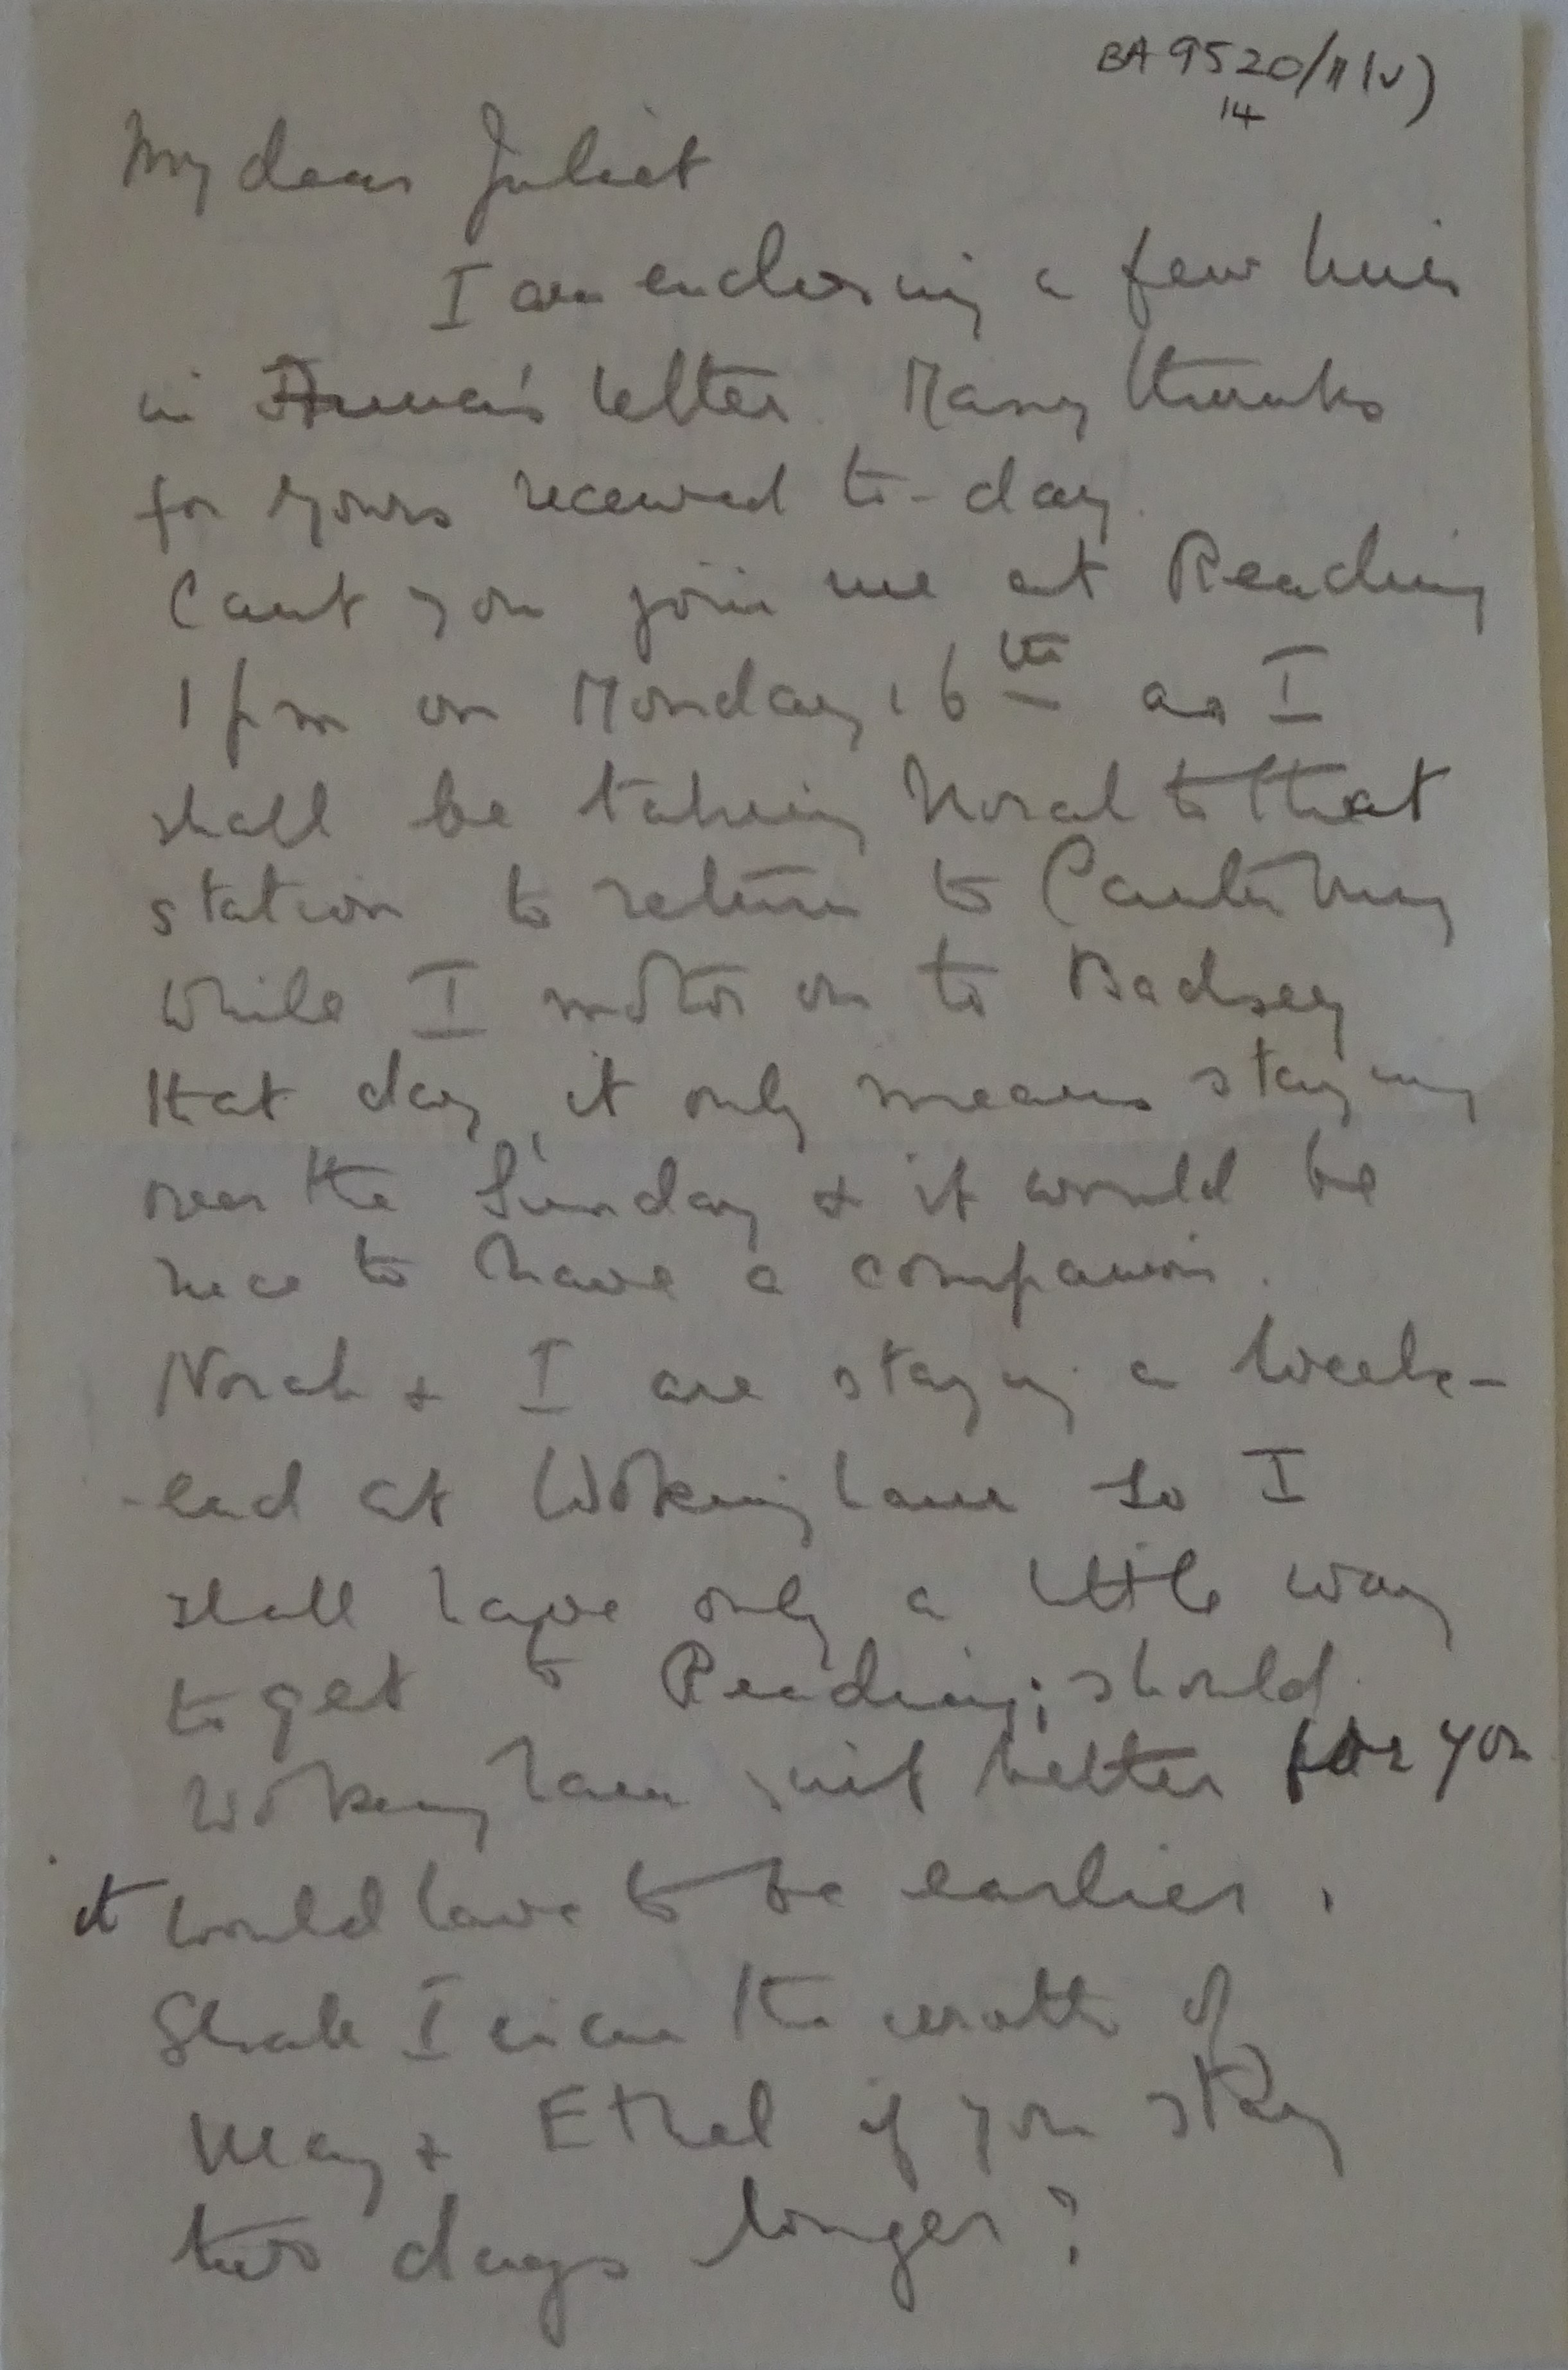 BA 9520/11(v)
14
My dear Juliet
I am enclosing a few lines
in letter. Many thanks
for yours received to-day.
Cant you join me at Reading
1 pm on Monday 16th as I
shall be taking Norah to that
station to return to Canterbury
while I motor on to Badsey
that day, it only means staying
over the Sunday & it would be
nice to have a companion.
Norah & I are staying a week-
-end at Wokingham so I
shall have only a little way
to get to Reading; should
Wokingham suit better for you
it would have to be earlier.
Shall I incur the wrath of
May & Ethel if you stay
two days longer?